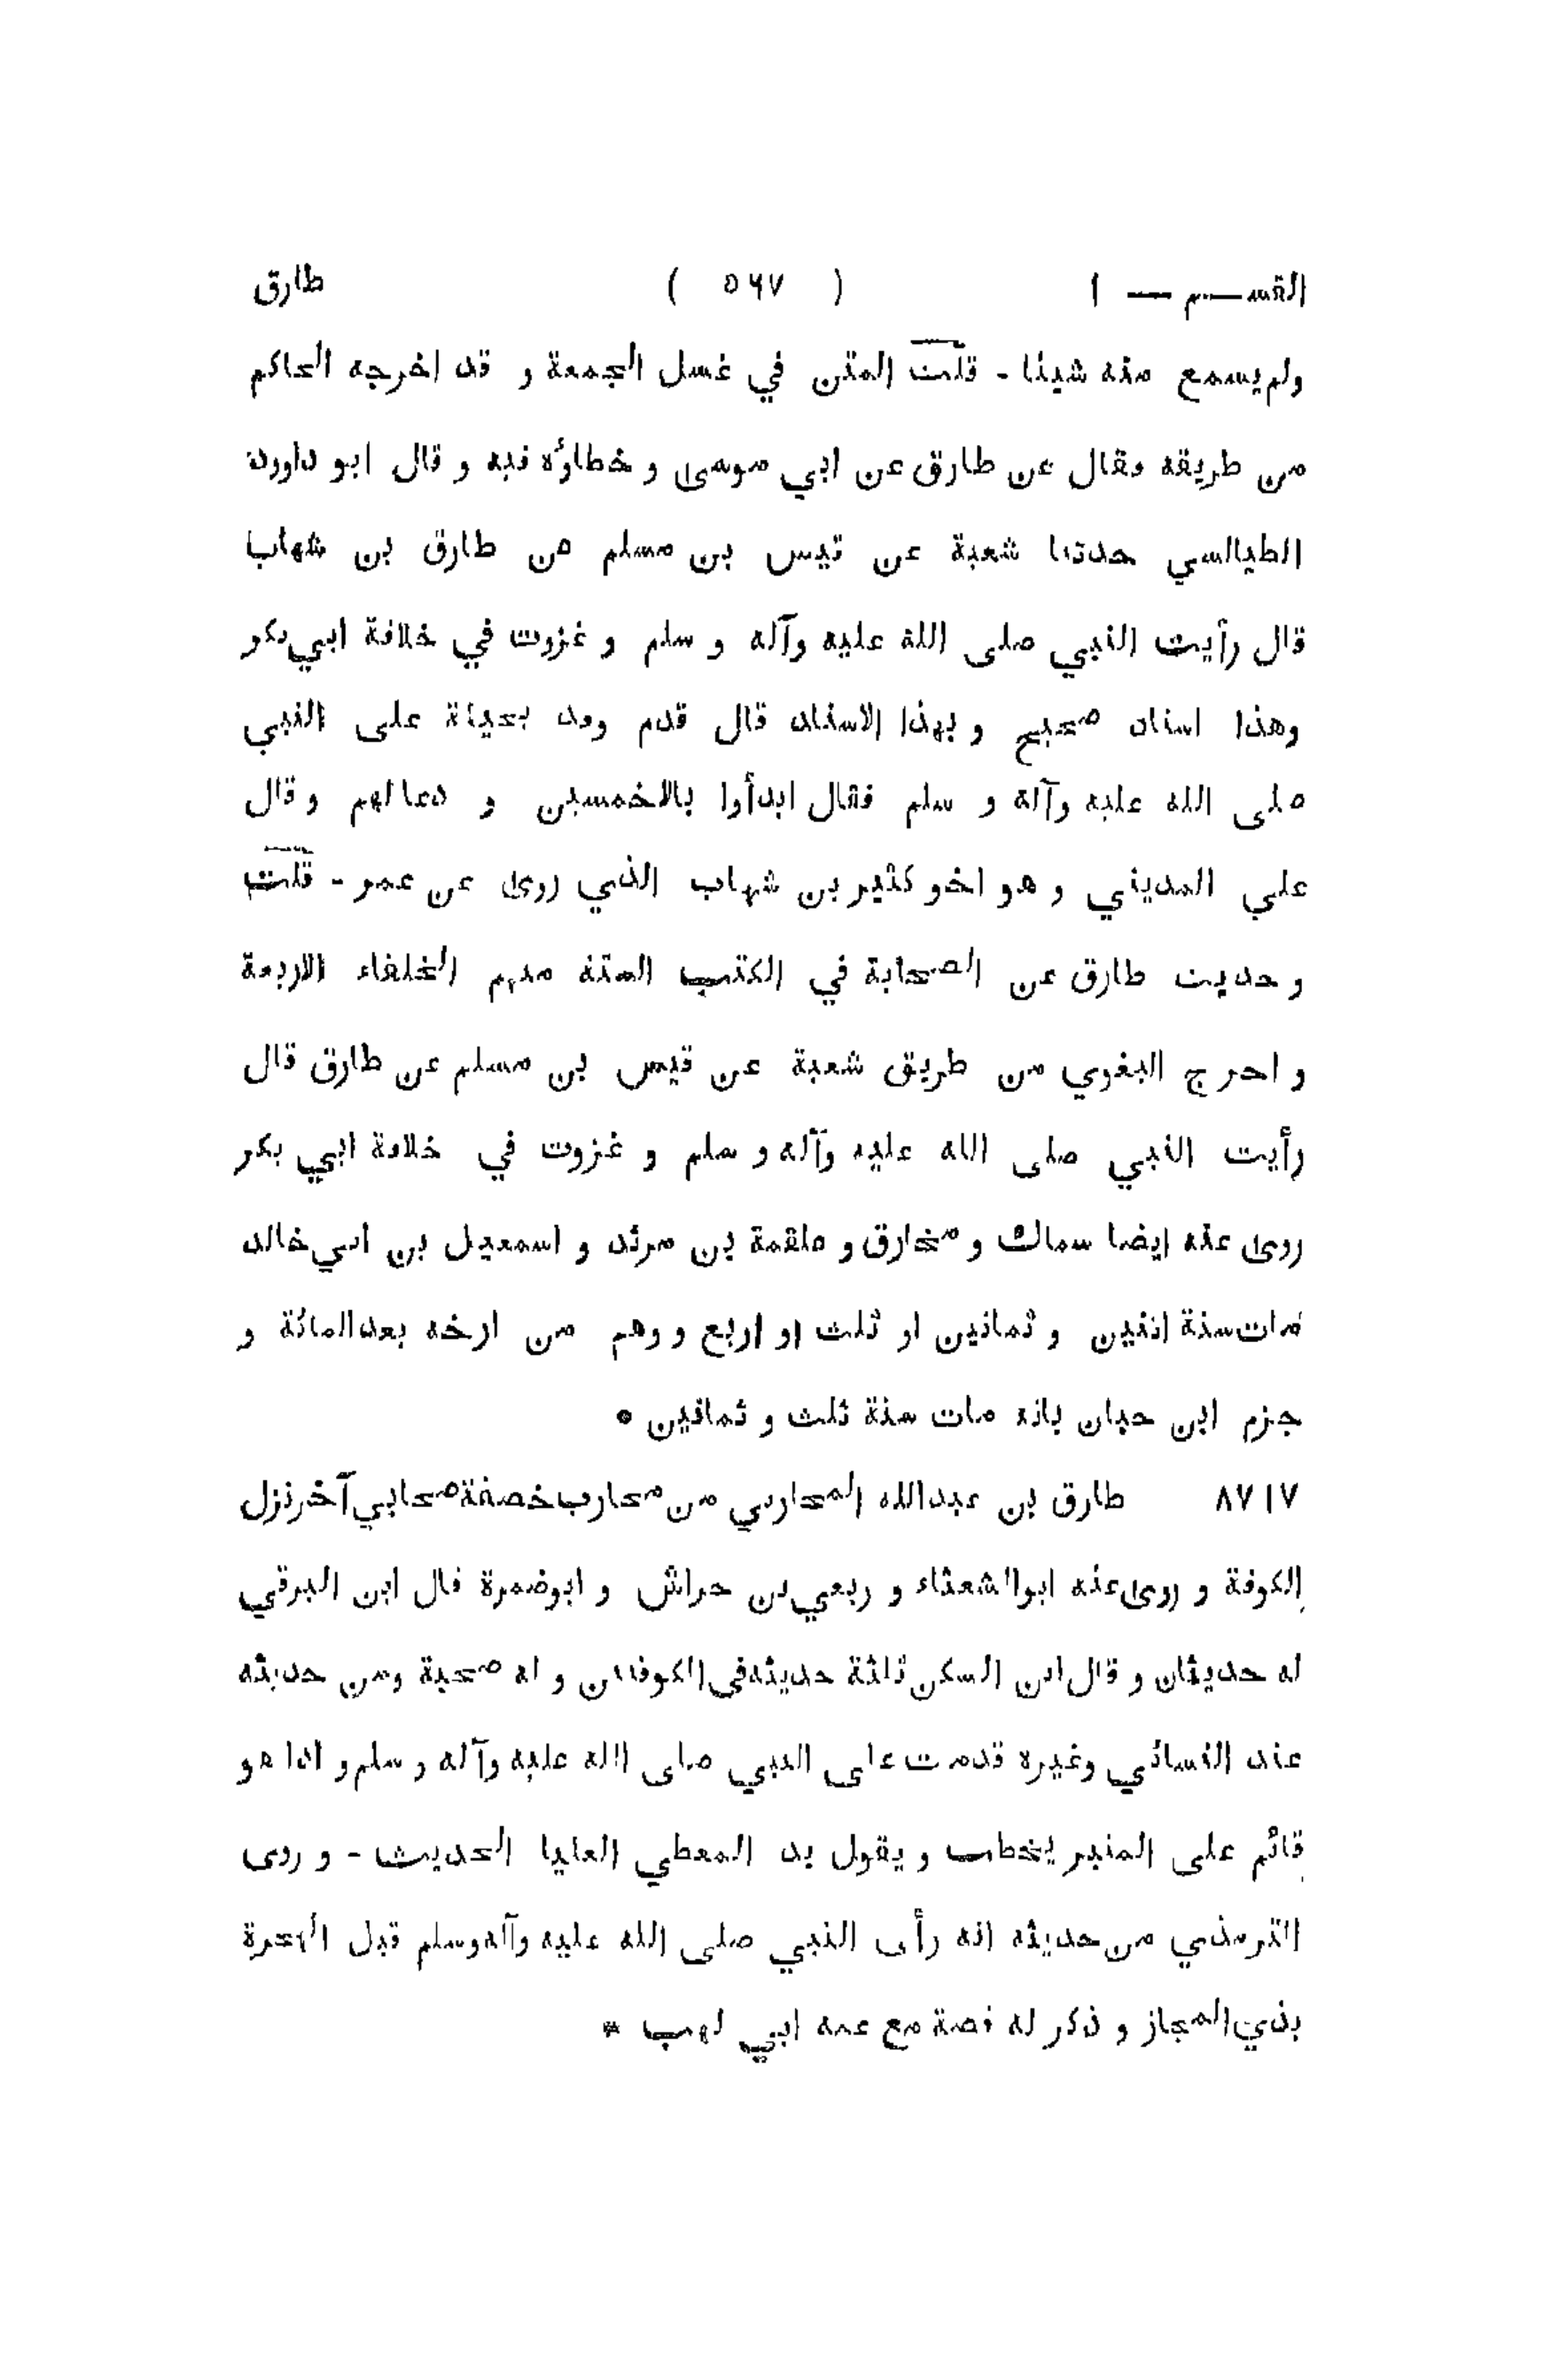 القسم — ١ ( ٥٦٧ ) طارق
ولم يسمع منه شيئا - قلت المتن في غسل الجمعة و قد اخرجه الحاكم
من طريقه فقال عن طارق عن ابي موسى و خطاؤه فيه و قال ابو داورد
الطيالسي حدثنا شعبة عن قيس بن مسلم عن طارق بن شهاب
قال رأيت النبي صلى الله عليه وآله و سلم و غزوت في خلافة ابي بكر
وهذا اسناد صحيح و بهذا الاسناد قال قدم وفد بجيلة على النبي
صلى الله عليه وآله و سلم فقال ابدأوا بالاخمسين و دعا لهم و قال
علي المديني و هو اخو كثير بن شهاب الذي روى عن عمر - قلت
و حديث طارق عن الصحابة في الكتب الستة منهم الخلفاء الاربعة
و اخرج البغوي من طريق شعبة عن قيس بن مسلم عن طارق قال
رأيت النبي صلى الله عليه وآله و سلم و غزوت في خلافة ابي بكر
روى عنه ايضا سماك و مخارق و علقمة بن مرثد و اسمعيل بن ابي خالد
مات سنة اثنين و ثمانين او ثلث او اربع و وهم من ارخه بعد المائة و
جزم ابن حبان بانه مات سنة ثلث و ثمانين *
٨٧١٧ طارق بن عبدالله المحاربي من محارب خصفة صحابي آخر نزل
الكوفة و روى عنه ابوالشعثاء و ربعي بن حراش و ابوضمرة قال ابن البرقي
له حديثان و قال ابن السكن ثلثة حديثه في الكوفيين و له صحبة ومن حديثه
عند النسائي وغيره قدمت على النبي صلى الله عليه وآله و سلم و اذا هو
قائم على المنبر يخطب و يقول يد المعطي العليا الحديث - و روى
الترمذي من حديثه انه رأى النبي صلى الله عليه وآله وسلم قبل الهجرة
بذي المجاز و ذكر له قصة مع عمه ابي لهب *